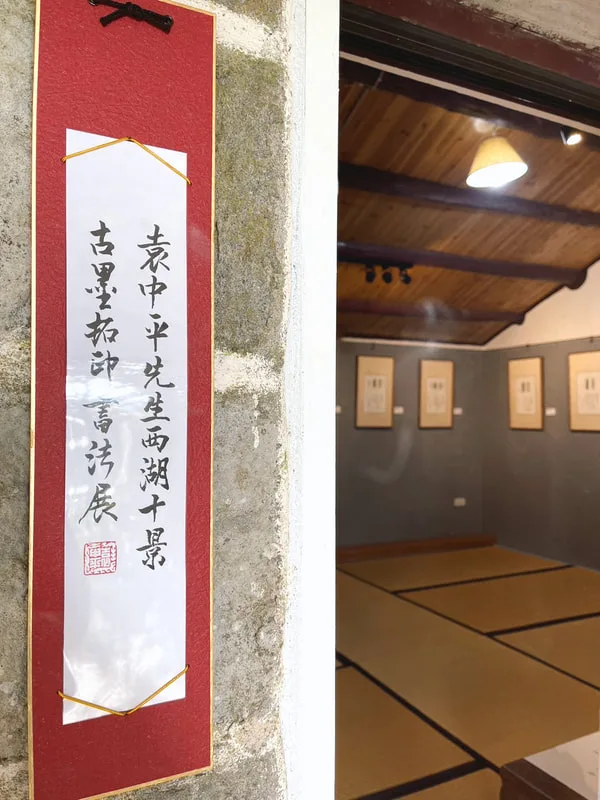 袁中平先生西湖十景
古墨拓印書法展